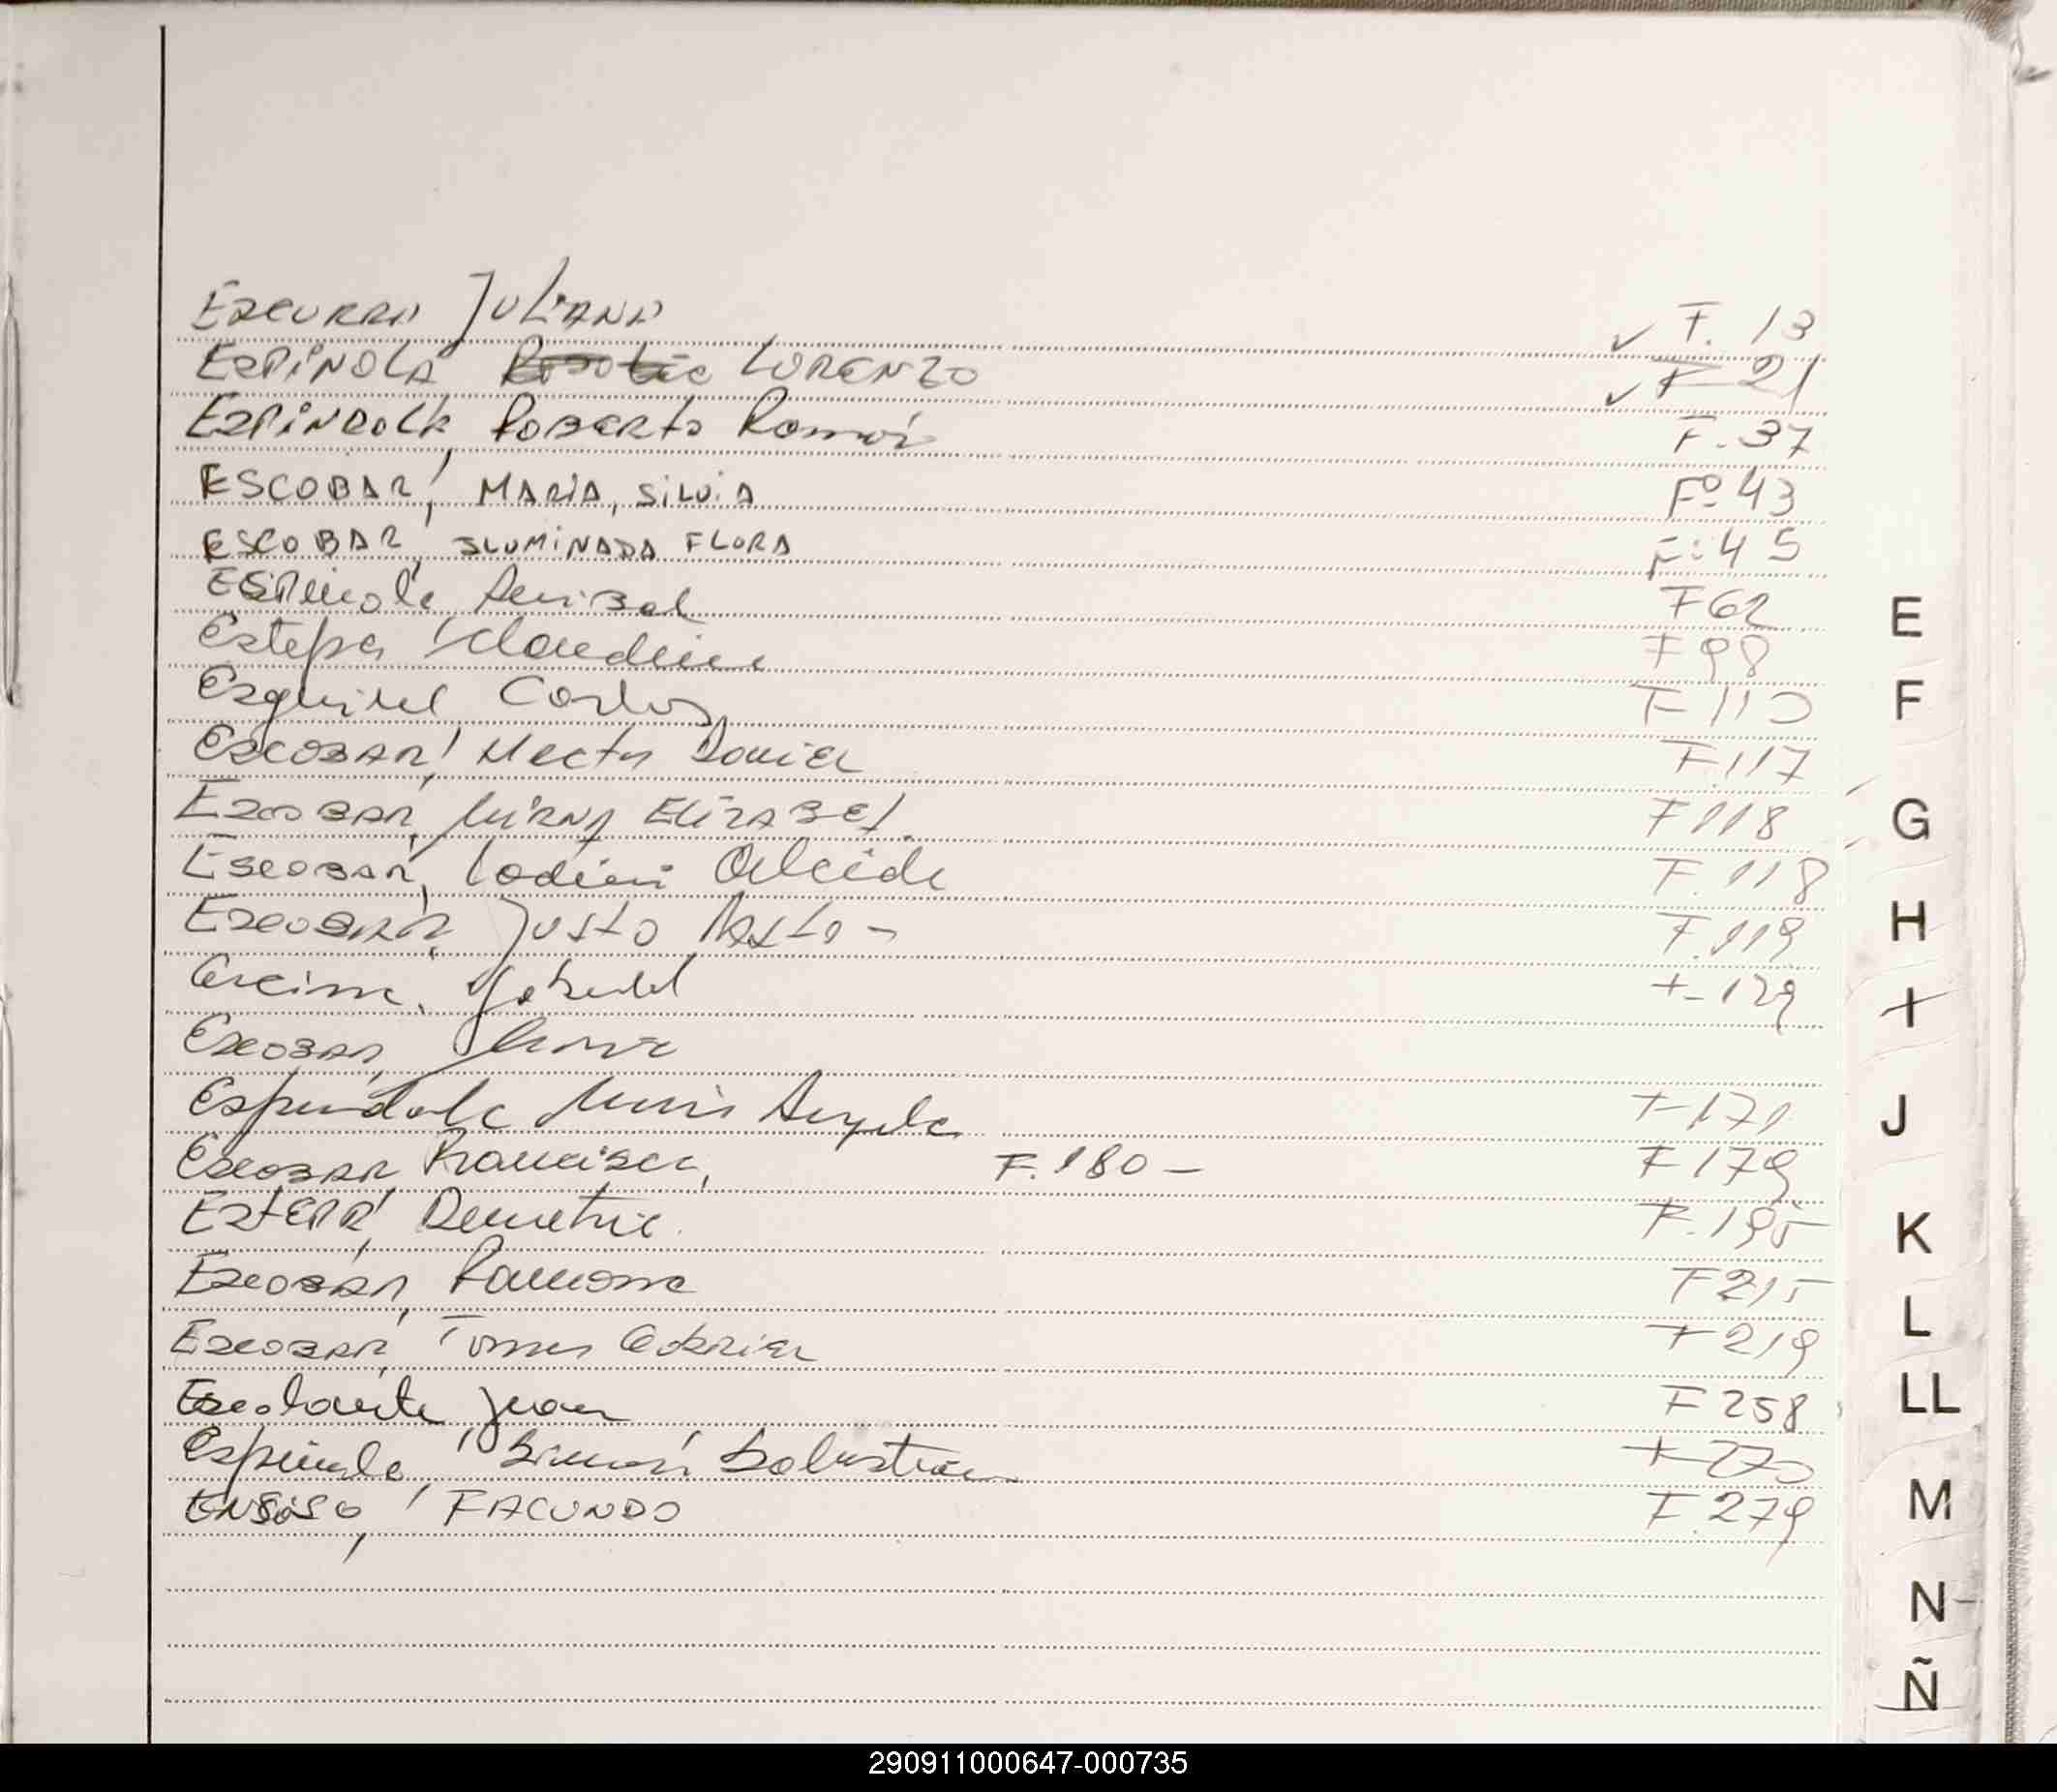 Escurra Juliana ✓ F. 13
Espinola Lorenzo ✓ F 21
Espindola, Roberto Ramón F. 37
ESCOBAR, MARIA, SILVIA Fº 43
ESCOBAR, ILUMINADA FLORA F: 45
Espinola Anibal F 62
Estepa Claudina F 98
Esquivel Carlos F 110
Escobar, Hector Daniel F. 117
Escobar, Mirna Elizabet. F 118
Escobar, Alcide F. 118
Escobar, Justo F. 119
Gabriel F- 129
Escobar,
Espindola Angela F 171
Escobar Francisca, F. 180 - F 179
Demetrio F. 195
Escobar, Ramona F 215
Escobar, Tomas Gabriel F 219
Escalante Juan F 258
Espinola, Simón F 270
ENSISO, FACUNDO F. 279
E
F
G
H
I
J
K
L
LL
M
N
Ñ
290911000647-000735